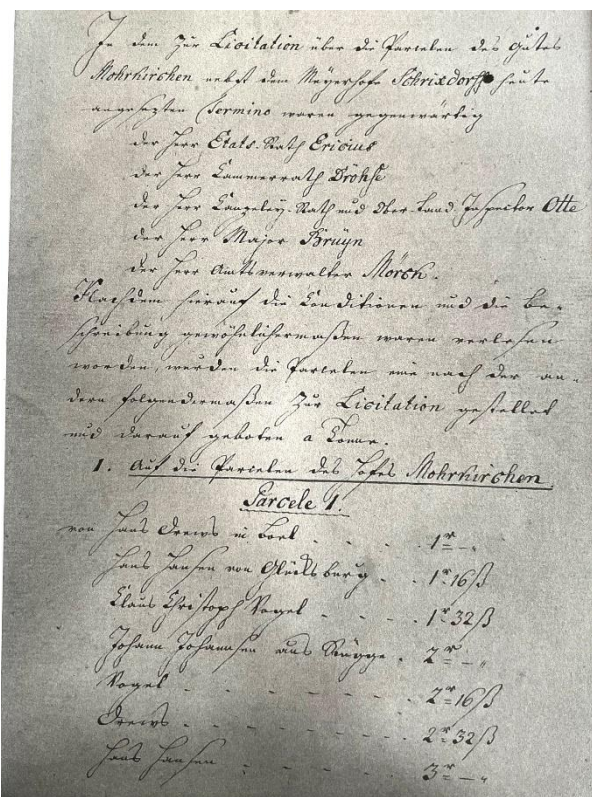 In dem zur Licitation über die Parcelen des Gutes
Mohrkirchen nebst dem Meyerhofe Schrixdorff heute
angesezten Termino waren gegenwärtig
der Herr Etats-Rath Ericius
der Herr Cammerrath Bröhse
der Herr Canzeley-Rath und Ober Land Inspector Otte
der Herr Major Bruyn
der Herr Amtsverwalter Mörck.
Nachdem hierauf die Conditionen und die Be-
schreibung gewöhnlichermaßen waren verlesen
worden, wurden die Parcelen eine nach der an-
dern folgendermaßen zur Licitation gestellet
und darauf geboten a Tonne.
1. Auf die Parcelen des Hofes Mohrkirchen
Parcele 1.
von Hans Drews in Boel - - - 1 r - "
Hans Hansen von Glücksburg - - 1 r 16 ß
Claus Christoph Vogel - - - 1 r 32 ß
Johann Johannsen aus Rügge - 2 r - "
Vogel - - - - - - 2 r 16 ß
Drews - - - - - - 2 r 32 ß
Hans Hansen - - - - - 3 r - "